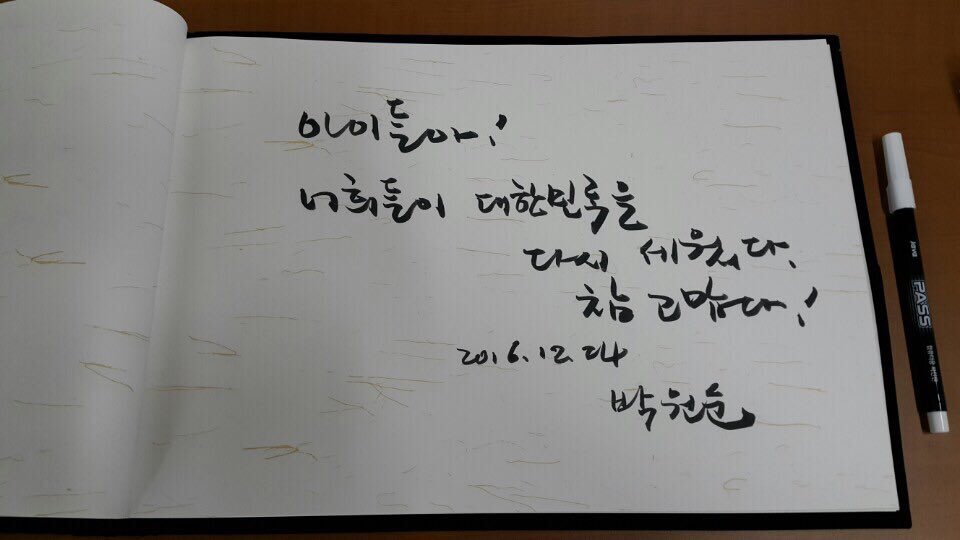 아이들아!
너희들이 대한민국을
다시 세웠다.
참 고맙다!
2016.12.24
박원순
PASS